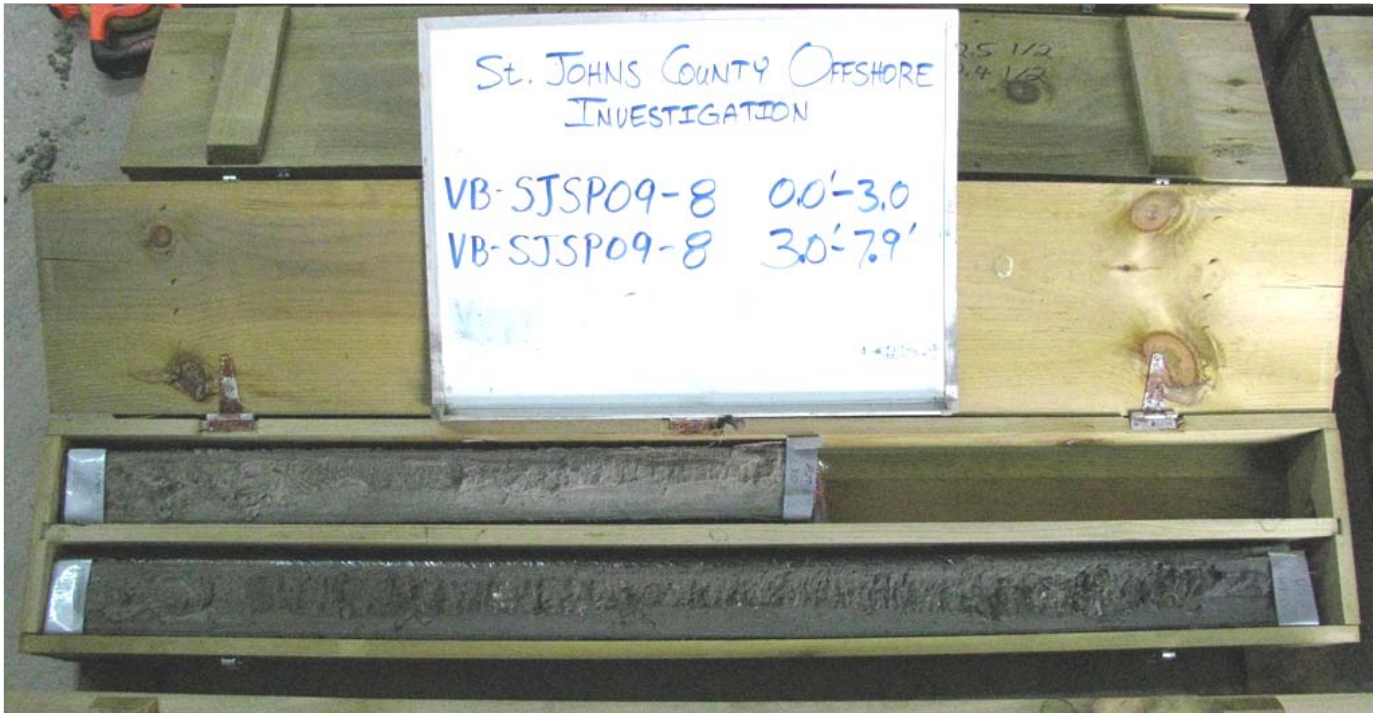 St. JOHNS COUNTY OFFSHORE
INVESTIGATION
VB-SJSP09-8 0.0'-3.0
VB-SJSP09-8 3.0'-7.9'
2.5 1/2
.4 1/2